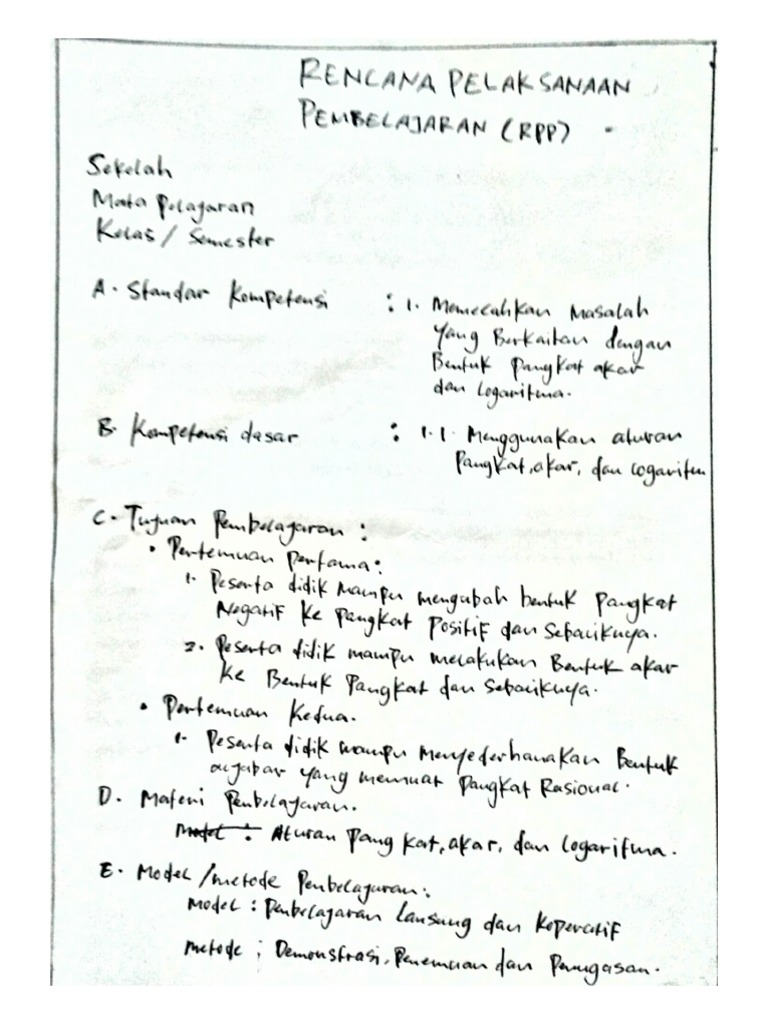 RENCANA PELAKSANAAN
PEMBELAJARAN (RPP)
Sekolah
Mata pelajaran
Kelas / Semester
A. Standar Kompetensi : 1. Memecahkan Masalah
yang Berkaitan dengan
Bentuk pangkat akar
dan logaritma.
B. Kompetensi dasar : 1.1. Menggunakan aturan
Pangkat, akar, dan logaritm
C. Tujuan Pembelajaran :
• Pertemuan pertama :
1. Peserta didik mampu mengubah bentuk pangkat
Negatif ke pangkat positif dan sebaliknya.
2. Peserta didik mampu melakukan Bentuk akar
ke Bentuk Pangkat dan sebaliknya.
• Pertemuan Kedua.
1. Peserta didik mampu menyederhanakan Bentuk
aljabar yang memuat Pangkat Rasional.
D. Materi Pembelajaran.
Model : Aturan Pangkat, akar, dan logaritma.
E. Model / metode Pembelajaran :
Model : Pembelajaran lansung dan Koperatif
Metode ; Demonstrasi, Penemuan dan Penugasan.